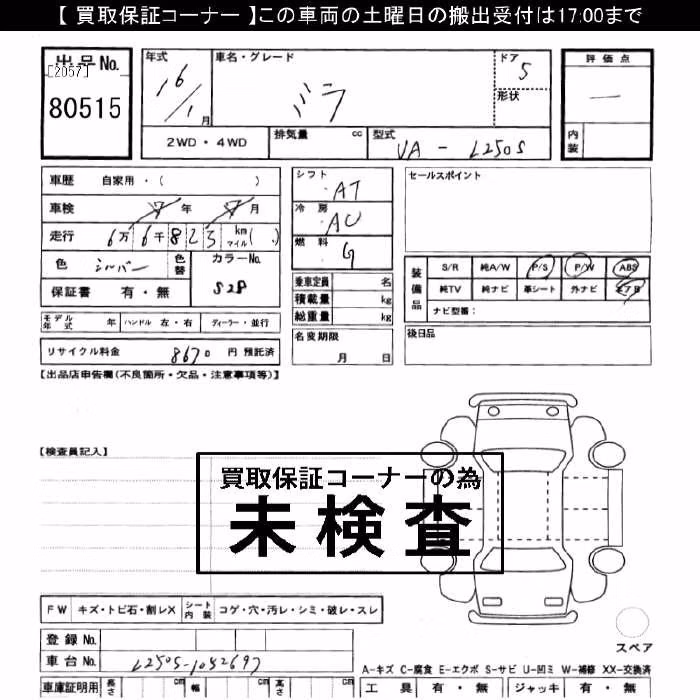 【 買取保証コーナー 】この車両の土曜日の搬出受付は17:00まで
出品No.
[2057]
80515
年式
16/1月
車名・グレード
ミラ
ドア
5
形状
2WD・4WD
排気量 cc
型式
UA - L250S
評価点
—
内装
車歴 自家用・( )
車検 年 月
走行 6万6千823 km マイル( )
色 シルバー 色替
カラーNo.
S28
保証書 有・無
モデル年式 年 ハンドル 左・右 ディーラー・並行
リサイクル料金 8670 円 預託済
シフト AT
冷房 AC
燃料 G
乗車定員 名
積載量 kg
総重量 kg
名変期限
月 日
セールスポイント
装備品
S/R 純A/W P/S P/W ABS
純TV 純ナビ 革シート 外ナビ エアB
ナビ型番:
後日品
【出品店申告欄(不良箇所・欠品・注意事項等)】
【検査員記入】
買取保証コーナーの為
未検査
FW キズ・トビ石・割レX シート内装 コゲ・穴・汚レ・シミ・破レ・スレ
登録No.
車台No. L250S-1052697
スペア
A-キズ C-腐食 E-エクボ S-サビ U-凹ミ W-補修 XX-交換済
車庫証明用 長さ cm 幅 cm 高さ cm
工具 有・無 ジャッキ 有・無